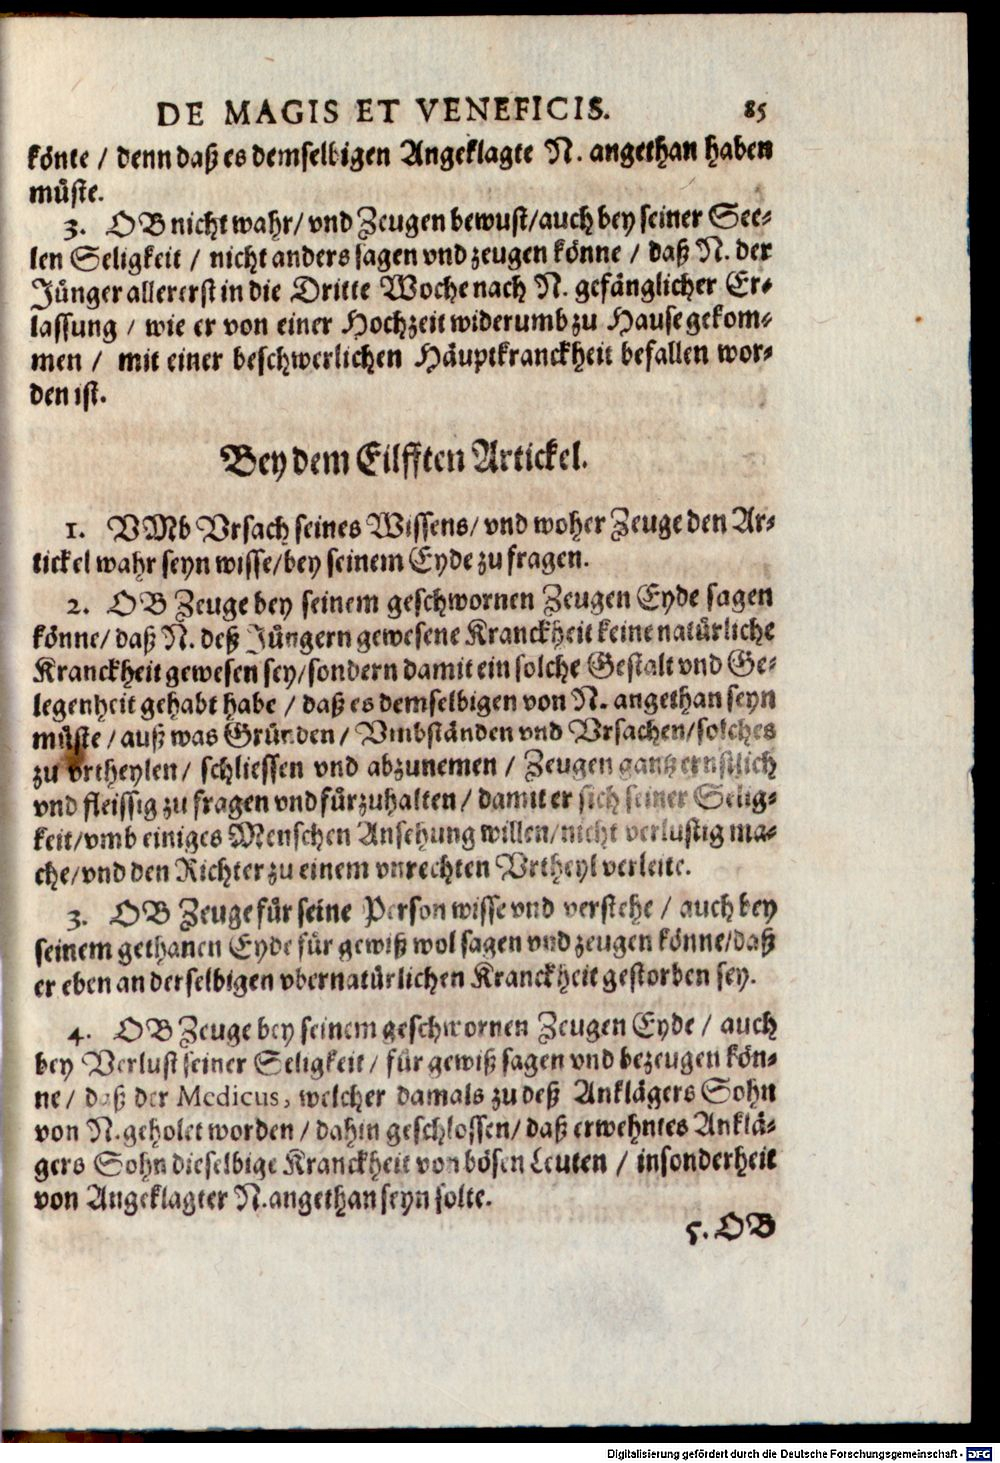 DE MAGIS ET VENEFICIS. 85
könte / denn daß es demselbigen Angeklagte N. angethan haben
müste.
3. OB nicht wahr / vnd Zeugen bewust / auch bey seiner See-
len Seligkeit / nicht anders sagen vnd zeugen könne / daß N. der
Jünger allererst in die Dritte Woche nach N. gefänglicher Er-
lassung / wie er von einer Hochzeit widerumb zu Hause gekom-
men / mit einer beschwerlichen Häuptkranckheit befallen wor-
den ist.
Bey dem Eilfften Artickel.
1. VMb Vrsach seines Wissens / vnd woher Zeuge den Ar-
tickel wahr seyn wisse / bey seinem Eyde zu fragen.
2. OB Zeuge bey seinem geschwornen Zeugen Eyde sagen
könne / daß N. deß Jüngern gewesene Kranckheit keine natürliche
Kranckheit gewesen sey / sondern damit ein solche Gestalt vnd Ge-
legenheit gehabt habe / daß es demselbigen von N. angethan seyn
müste / auß was Gründen / Vmbständen vnd Vrsachen / solches
zu vrtheylen / schliessen vnd abzunemen / Zeugen gantz ernstlich
vnd fleissig zu fragen vnd fürzuhalten / damit er sich seiner Selig-
keit / vmb einiges Menschen Ansehung willen / nicht verlustig ma-
che / vnd den Richter zu einem vnrechten Vrtheyl verleite.
3. OB Zeuge für seine Person wisse vnd verstehe / auch bey
seinem gethanen Eyde für gewiß wol sagen vnd zeugen könne / daß
er eben an derselbigen vbernatürlichen Kranckheit gestorben sey.
4. OB Zeuge bey seinem geschwornen Zeugen Eyde / auch
bey Verlust seiner Seligkeit / für gewiß sagen vnd bezeugen kön-
ne / daß der Medicus, welcher damals zu deß Anklägers Sohn
von N. geholet worden / dahin geschlossen / daß erwehntes Anklä-
gers Sohn dieselbige Kranckheit von bösen Leuten / insonderheit
von Angeklagter N. angethan seyn solte.
5. OB
Digitalisierung gefördert durch die Deutsche Forschungsgemeinschaft - DFG